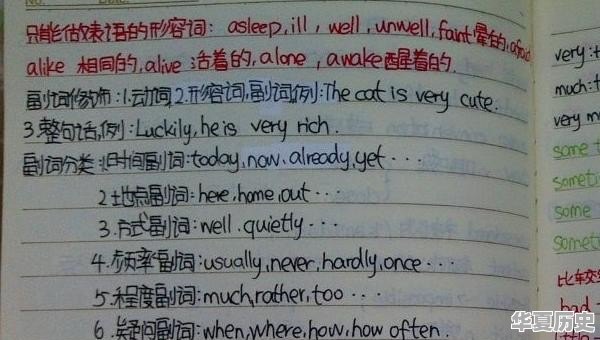 只能做表语的形容词: asleep, ill, well, unwell, faint 晕的, afraid
alike 相同的, alive 活着的, alone, awake 醒着的.
副词修饰: 1.动词 2.形容词,副词,例: The cat is very cute.
3.整句话,例: Luckily, he is very rich.
副词分类: 1.时间副词: today, now, already, yet ···
2.地点副词: here, home, out ···
3.方式副词: well, quietly ···
4.频率副词: usually, never, hardly, once ···
5.程度副词: much, rather, too ···
6.疑问副词: when, where, how, how often.
very:
much:
very
some
some
比较
had
华夏历史